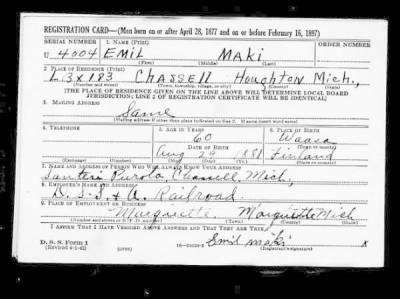 REGISTRATION CARD—(Men born on or after April 28, 1877 and on or before February 16, 1897)
SERIAL NUMBER 1. NAME (Print)
U 4004 EMIL MAKI
(First) (Middle) (Last)
2. PLACE OF RESIDENCE (Print)
L3X183 CHASSELL Houghton Mich.,
(Number and street) (Town, township, village, or city) (County) (State)
[THE PLACE OF RESIDENCE GIVEN ON THE LINE ABOVE WILL DETERMINE LOCAL BOARD
JURISDICTION; LINE 2 OF REGISTRATION CERTIFICATE WILL BE IDENTICAL]
3. MAILING ADDRESS
Same
[Mailing address if other than place indicated on line 2. If same insert word same]
4. TELEPHONE 5. AGE IN YEARS 6. PLACE OF BIRTH
60 Waasa
DATE OF BIRTH (Town or county)
Aug 29 1881 Finland
(Exchange) (Number) (Mo.) (Day) (Yr.) (State or country)
7. NAME AND ADDRESS OF PERSON WHO WILL ALWAYS KNOW YOUR ADDRESS
Santeri Purola Chassell, Mich,
8. EMPLOYER'S NAME AND ADDRESS
D. S. S. & A. Railroad.
9. PLACE OF EMPLOYMENT OR BUSINESS
Marquette, Marquette Mich
(Number and street or R. F. D. number) (Town) (County) (State)
I AFFIRM THAT I HAVE VERIFIED ABOVE ANSWERS AND THAT THEY ARE TRUE.
D. S. S. Form 1
(Revised 4-1-42) (over) Emil maki x
(Registrant's signature)